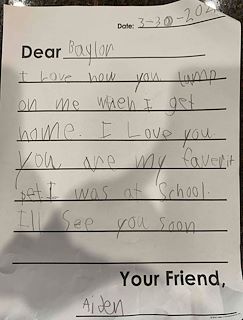 Date: 3-30-202
Dear Baylor
I Love how you Jump
on me when I get
home. I Love you.
You are my faverit
pet I was at School.
I'll See you soon
Your Friend,
Aiden